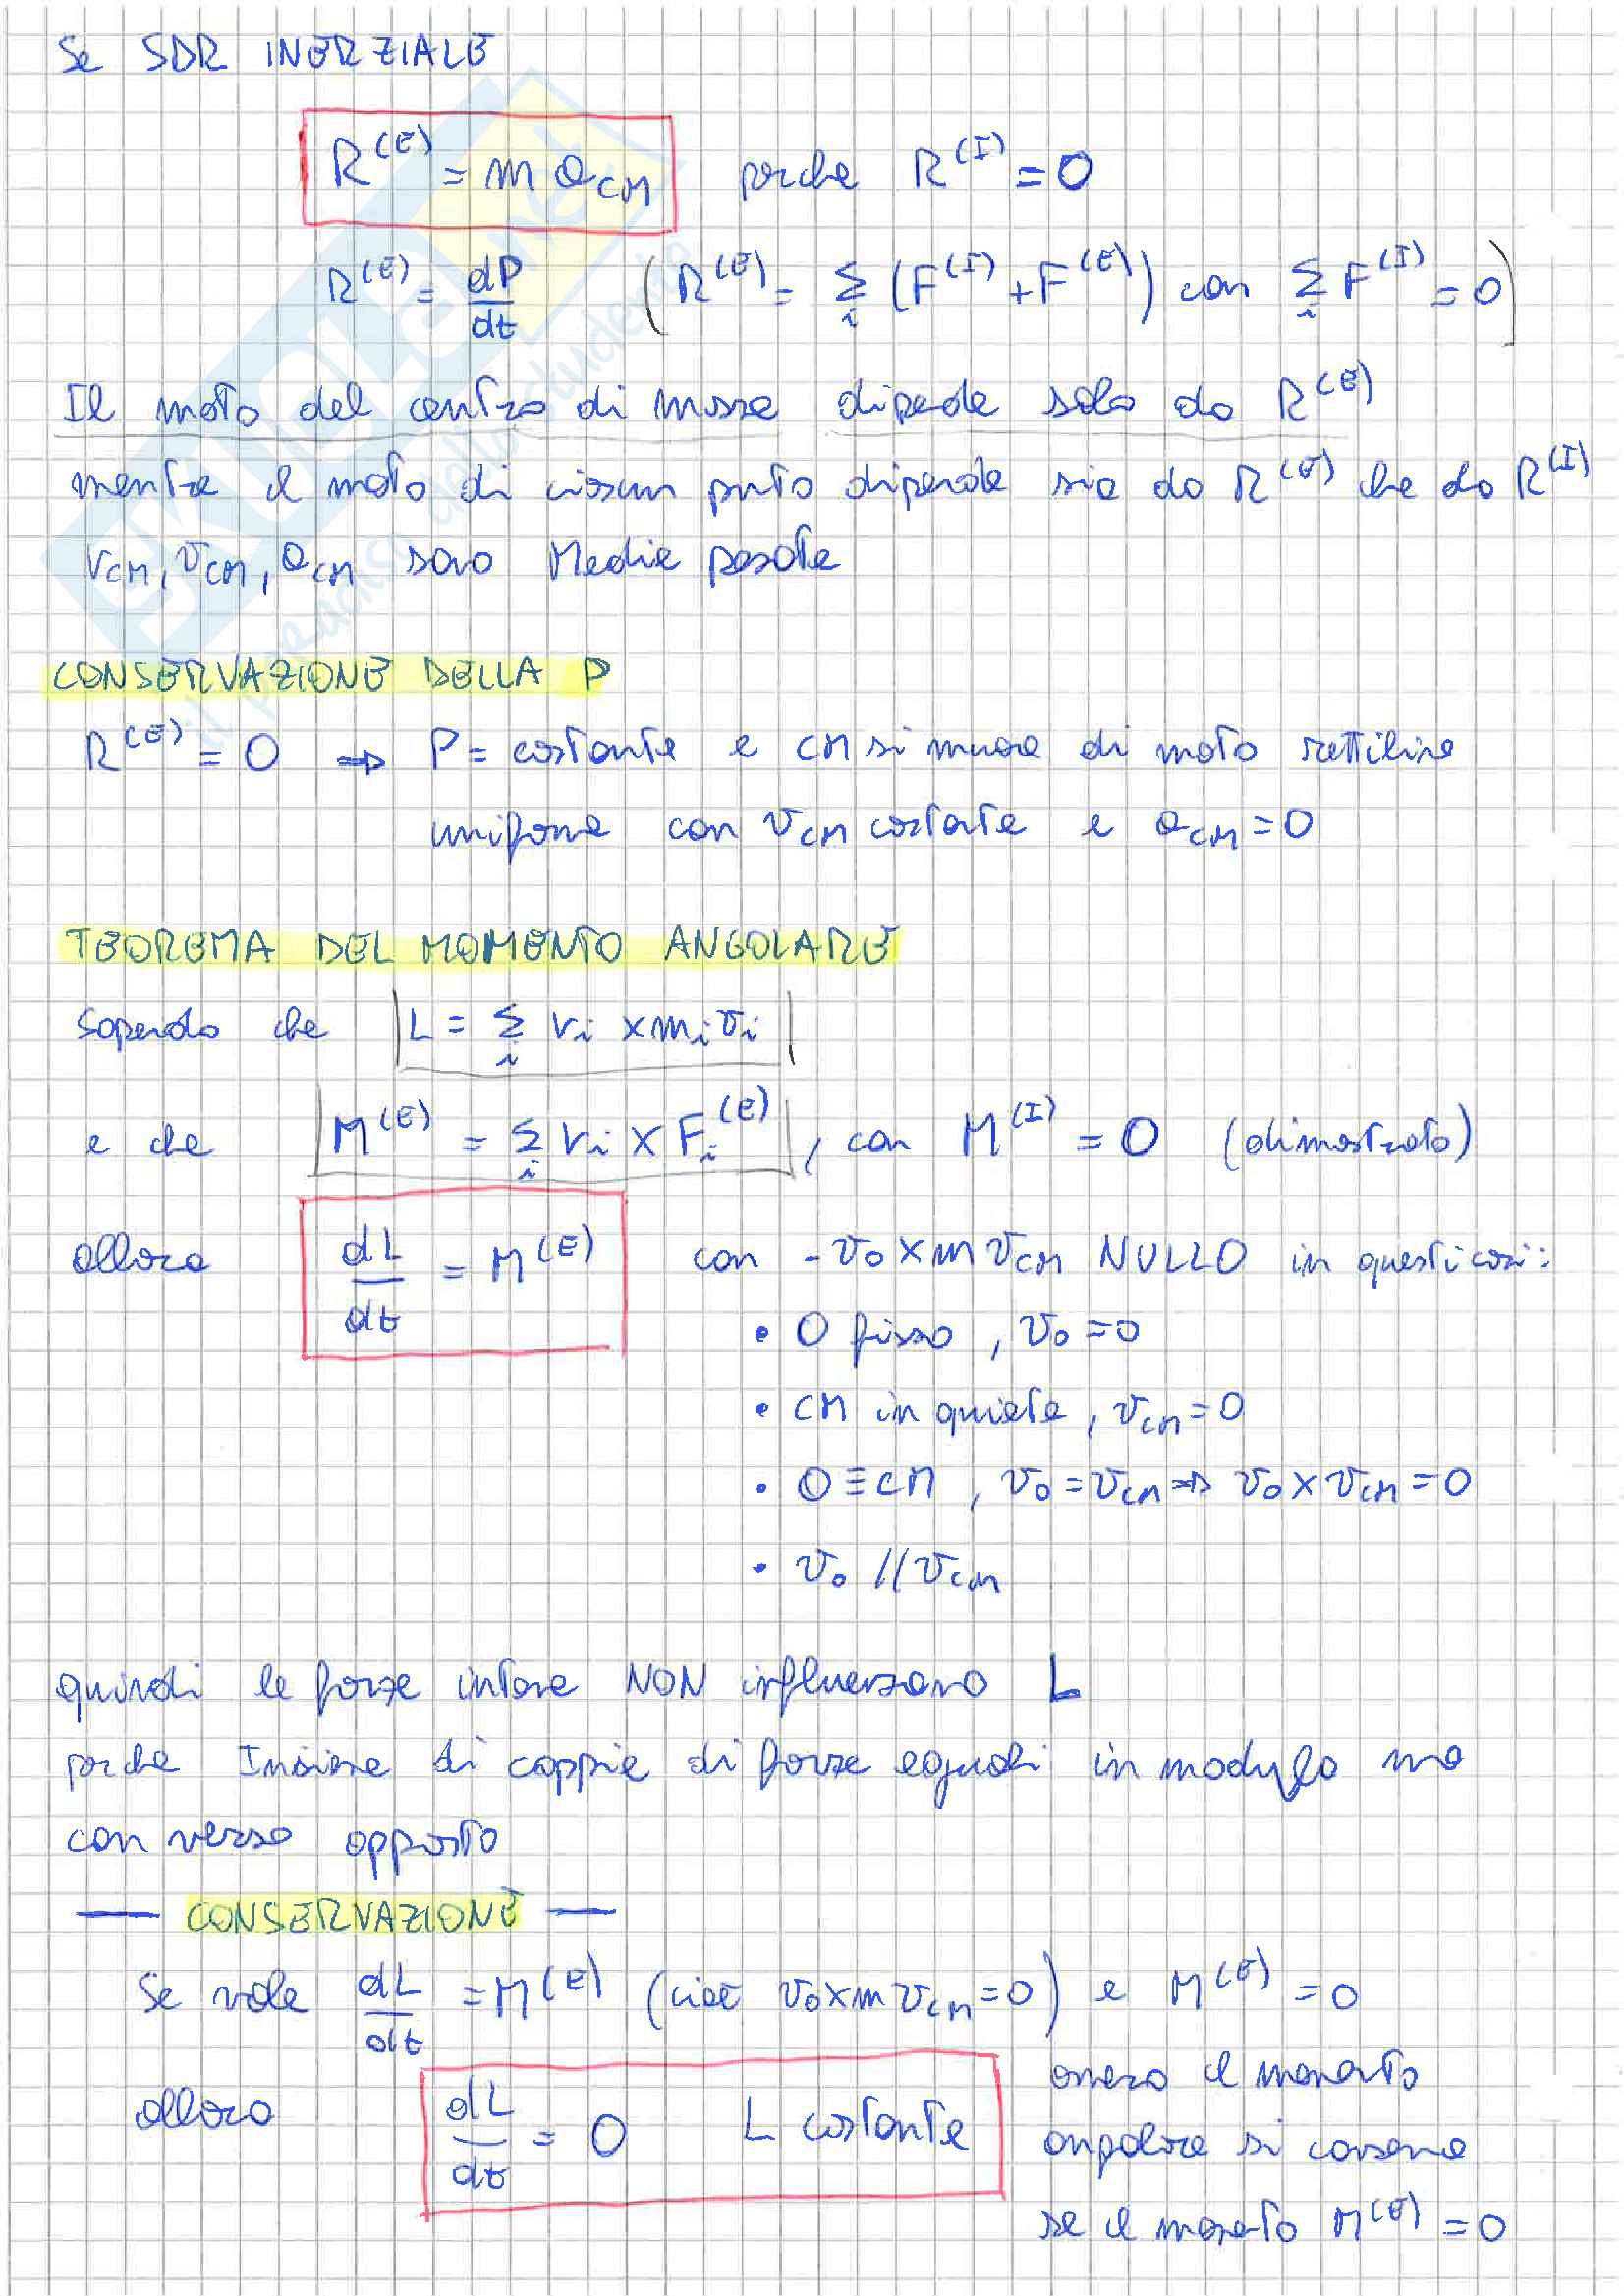 Se SDR INERZIALE
R^(E) = m a_CM perche R^(I) = 0
R^(E) = dP/dt (R^(E) = Σ_i (F^(I) + F^(E)) con Σ_i F^(I) = 0)
Il moto del centro di massa dipende solo da R^(E)
mentre il moto di ciascun punto dipende sia da R^(E) che da R^(I)
r_CM, v_CM, a_CM sono Medie pesate
CONSERVAZIONE DELLA P
R^(E) = 0 ⇒ P = costante e CM si muove di moto rettilineo
uniforme con v_CM costante e a_CM = 0
TEOREMA DEL MOMENTO ANGOLARE
Sapendo che L = Σ_i r_i × m_i v_i
e che M^(E) = Σ_i r_i × F_i^(E), con M^(I) = 0 (dimostrato)
allora dL/dt = M^(E) con - v_0 × m v_CM NULLO in questi casi:
• O fisso, v_0 = 0
• CM in quiete, v_CM = 0
• O ≡ CM, v_0 = v_CM ⇒ v_0 × v_CM = 0
• v_0 // v_CM
quindi le forze interne NON influenzano L
perche Insieme di coppie di forze eguali in modulo ma
con verso opposto
— CONSERVAZIONE —
Se vale dL/dt = M^(E) (cioè v_0 × m v_CM = 0) e M^(E) = 0
allora dL/dt = 0 L costante
ovvero il momento
angolare si conserva
se il momento M^(E) = 0
SKUOLA.net
il paradiso dello studente